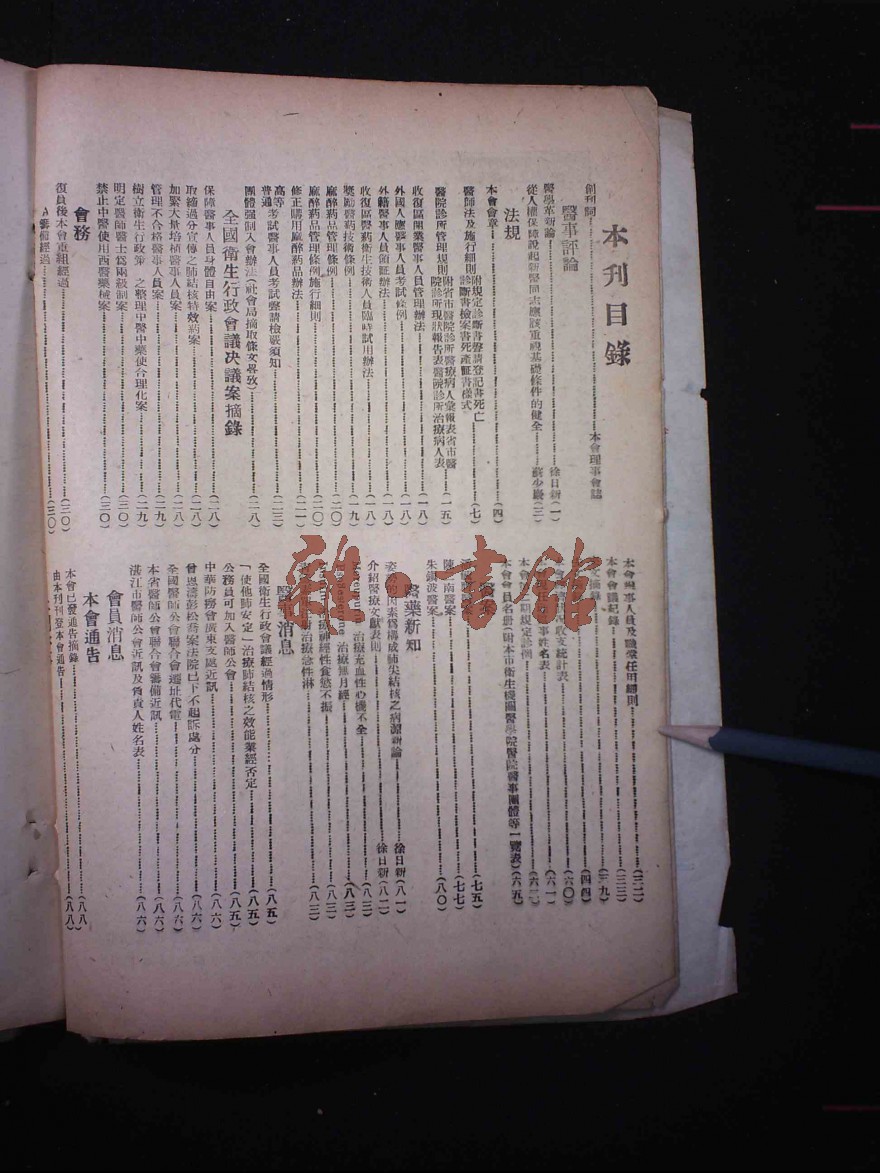 本刊目錄
創刊詞 本會理事會誌
醫事評論
醫學革新論 徐日新(一)
從人權保障說起新醫同志應該重視基礎條件的健全 蘇少巖(三)
法規
本會會章 (四)
醫師法及施行細則 附規定診斷書聲請登記書死亡診斷書檢案書死產証書樣式 (七)
醫院診所管理規則 附省市醫院診所醫療病人彙報表省市醫院診所現狀報告表醫院診所治療病人表 (一五)
收復區開業醫事人員管理辦法 (一八)
外國人應醫事人員考試條例 (一八)
外籍醫事人員領証辦法 (一八)
收復區醫藥衛生技術人員臨時試用辦法 (一八)
獎勵醫藥技術條例 (一九)
麻醉葯品管理條例 (二〇)
麻醉葯品管理條例施行細則 (二〇)
修正購用麻醉葯品辦法 (二一)
高等普通考試醫事人員考試聲請檢覈須知 (二三)
團體強制入會辦法(社會局摘取條文畧攷) (二八)
全國衛生行政會議決議案摘錄
保障醫事人員身體自由案 (二八)
取締過分宣傳之肺結核特效葯案 (二八)
加緊大量培植醫事人員案 (二八)
管理不合格醫事人員案 (二九)
樹立衛生行政策 之整理中醫中藥使合理化案 (二九)
明定醫師醫士爲兩級制案 (三〇)
禁止中醫使用西醫藥械案 (三〇)
會務
復員後本會重組經過 (三〇)
A籌備經過 (三〇)
本會理事人員及職業任用細則 (三二)
本會會議紀錄 (三三)
摘錄 (三九)
(四四)
收支統計表 (六〇)
事姓名表 (六一)
本會 期規定診例 (六二)
本會會員名册(附本市衛生機關醫學院醫院醫事團體等一覽表) (六五)
(七五)
陳 南醫案 (七七)
朱錫波醫案 (八〇)
醫藥新知
姿勢的因素爲構成肺尖結核之病源新論 徐日新(八一)
介紹醫療文獻表則 徐日新(八二)
治療充血性心機不全 (八三)
治療無月經 (八三)
治療神經性食慾不振 (八三)
治療急性淋 (八三)
醫事消息
全國衛生行政會議經過情形 (八五)
「使他肺安定」治療肺結核之效能業經否定 (八五)
公務員可加入醫師公會 (八五)
中華防癆會廣東支處近訊 (八六)
曾恩濤彭松喬案法院已下不起訴處分 (八六)
全國醫師公會聯合會遷址代電 (八六)
本省醫師公會聯合會籌備近訊 (八六)
湛江市醫師公會近訊及負責人姓名表 (八六)
會員消息
本會通告
本會已發通告摘錄 (八八)
由本刊刊登本會通告 (八八)
雜·書館